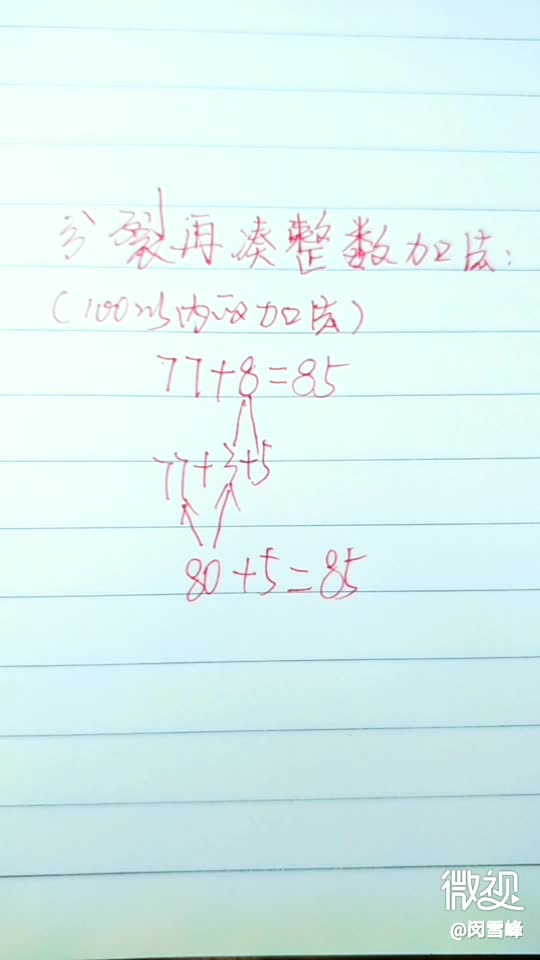 分裂再凑整数加法:
(100以内的加法)
77+8=85
77+3+5
80+5=85
微视
@闵雪峰